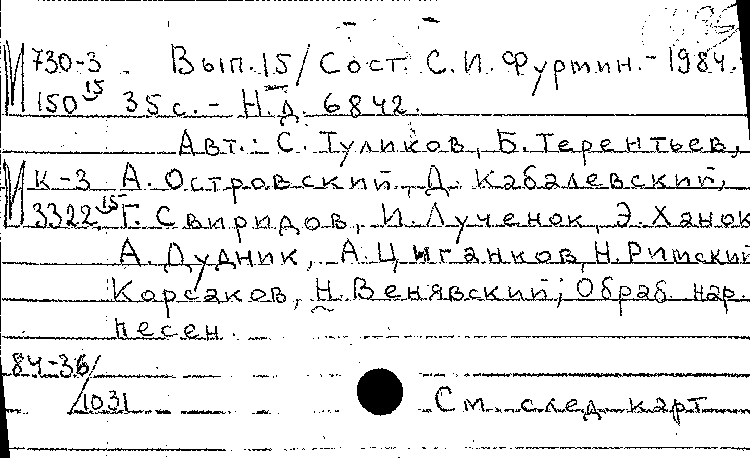 М 730-3 Вып. 15 / Сост. С. И. Фурмин. - 1984. -
150 15 35 с. - Н. д. 6842.
Авт.: С. Туликов, Б. Терентьев,
М К-3 А. Островский, Д. Кабалевский,
3322 15 Г. Свиридов, И. Лученок, Э. Ханок
А. Дудник, А. Цыганков, Н. Римский
Корсаков, Н. Венявский; Обраб. нар.
песен.
84-36/
1031 См. след. карт